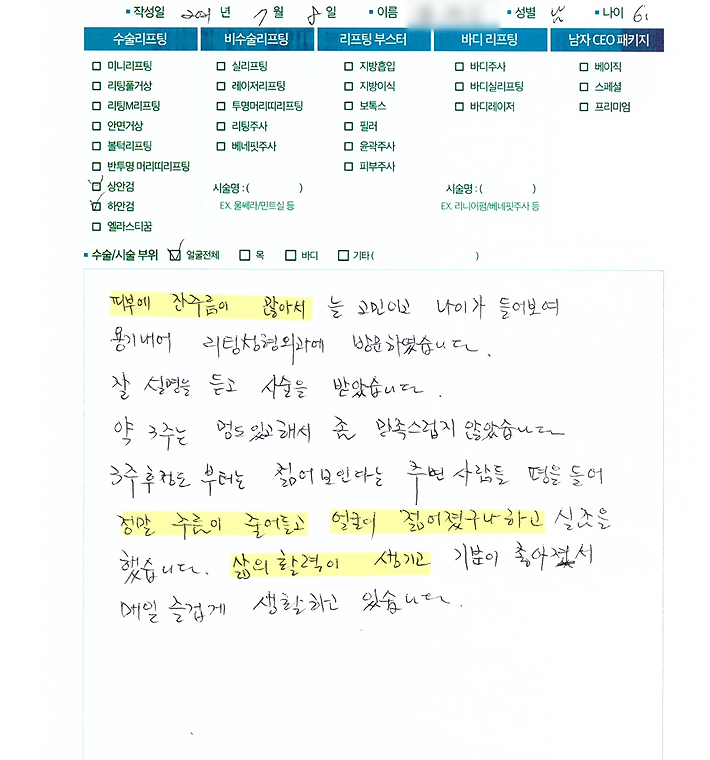 ▪ 작성일 년 7 월 8 일 ▪ 이름 ▪ 성별 남 ▪ 나이 61
수술리프팅 비수술리프팅 리프팅 부스터 바디 리프팅 남자 CEO 패키지
□ 미니리프팅 □ 실리프팅 □ 지방흡입 □ 바디주사 □ 베이직
□ 리팅풀거상 □ 레이저리프팅 □ 지방이식 □ 바디실리프팅 □ 스페셜
□ 리팅M리프팅 □ 투명머리띠리프팅 □ 보톡스 □ 바디레이저 □ 프리미엄
□ 안면거상 □ 리팅주사 □ 필러
□ 볼턱리프팅 □ 베네핏주사 □ 윤곽주사
□ 반투명 머리띠리프팅 □ 피부주사
☑ 상안검 시술명 : ( ) 시술명 : ( )
☑ 하안검 EX. 울쎄라/민트실 등 EX. 리니어펌/베네핏주사 등
□ 엘라스티꿈
▪ 수술/시술 부위 ☑ 얼굴전체 □ 목 □ 바디 □ 기타 ( )
피부에 잔주름이 많아서 늘 고민이고 나이가 들어보여
용기내어 리팅성형외과에 방문하였습니다.
잘 설명을 듣고 시술을 받았습니다.
약 3주는 멍도 있고해서 좀 만족스럽지 않았습니다
3주후정도 부터는 젊어보인다는 주변 사람들 평을 들어
정말 주름이 줄어들고 얼굴이 젊어졌구나하고 실감을
했습니다. 삶의 활력이 생기고 기분이 좋아져서
매일 즐겁게 생활하고 있습니다.